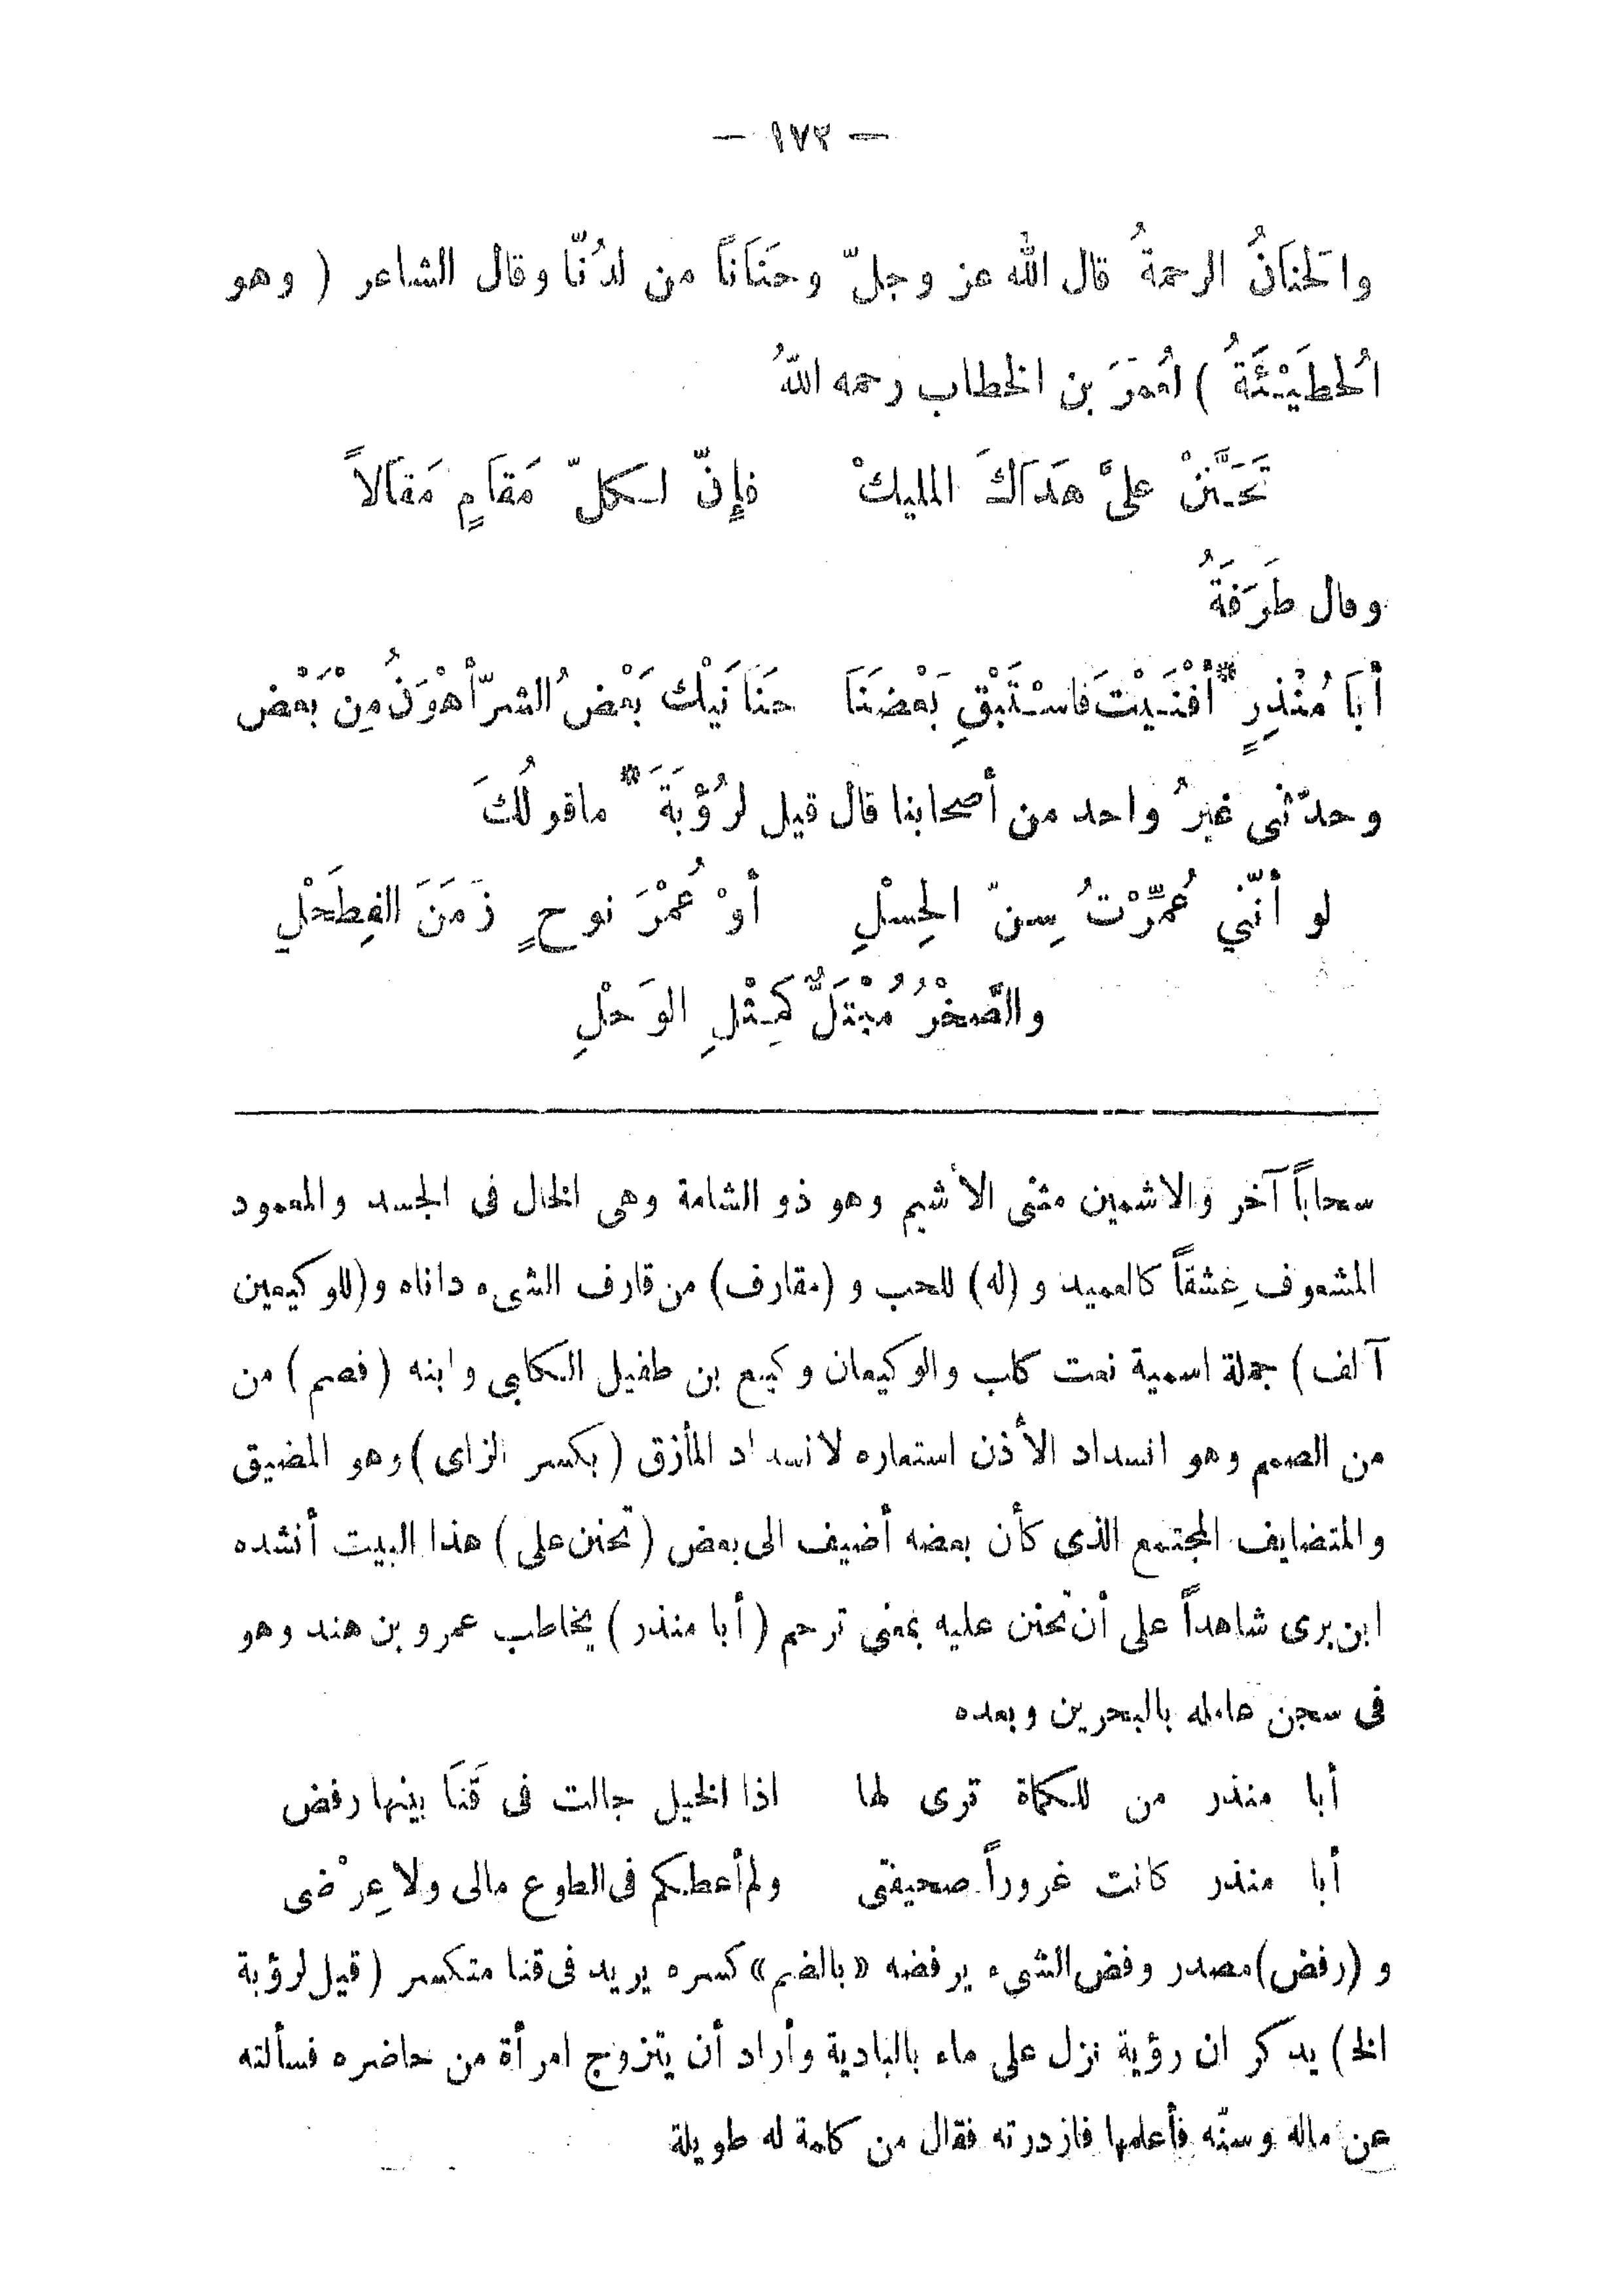 — ١٧٣ —
والحَنَانُ الرحمةُ قال الله عز وجلّ وحَنَاناً من لدُنّا وقال الشاعر ( وهو
الُحطَيْئَةُ ) لعُمَرَ بن الخطاب رحمه اللهُ
تَحَنَّنْ علىَّ هَدَاكَ المليكْ فإِنّ لكلّ مَقاَمٍ مَقاَلاً
وقال طَرَفَةُ
أَبَا مُنْذِرٍ * أَفْنَيْتَ فاسْتَبْقِ بَعْضَنَا حَنَانَيْك بَعْضُ الشرّ أَهْوَنُ مِنْ بَعْض
وحدّثنى غيرُ واحد من أصحابنا قال قيل لرُؤْبَةَ * ماقولُكَ
لو أَنّني عُمِّرْتُ سِنّ الحِسْلِ أَوْ عُمْرَ نوحٍ زَمَنَ الفِطَحْلِ
والصَّخْرُ مُبْتَلٌّ كَمِثْلِ الوَحْلِ
سحاباً آخر والاشمين مثنى الأشيم وهو ذو الشامة وهى الخال فى الجسد والمعمود
المشعوف عِشقاً كالعميد و (له) للحب و (مقارف) من قارف الشىء داناه و(للوكيعين
آلف) جملة اسمية نعت كلب والوكيعان وكيع بن طفيل الكلبى وابنه (فصم) من
من الصمم وهو انسداد الأذن استعاره لانسداد المأزق (بكسر الزاى) وهو المضيق
والمتضايف المجتمع الذى كأن بعضه أضيف الى بعض (تحنن على) هذا البيت أنشده
ابن برى شاهداً على أن تحنن عليه بمعنى ترحم (أبا منذر) يخاطب عمرو بن هند وهو
فى سجن عامله بالبحرين وبعده
أبا منذر من للكماة ترى لها اذا الخيل جالت فى قَناَ بينها رفض
أبا منذر كانت غروراً صحيفتى ولم أعطكم فى الطوع مالى ولا عِرْضى
و (رفض) مصدر وفض الشىء يرفضه «بالضم» كسره يريد فى قنا متكسر (قيل لرؤبة
الخ) يذكر ان رؤية نزل على ماء بالبادية وأراد أن يتزوج امرأة من حاضره فسألته
عن ماله وسنّه فأعلمها فازدرته فقال من كلمة له طويلة